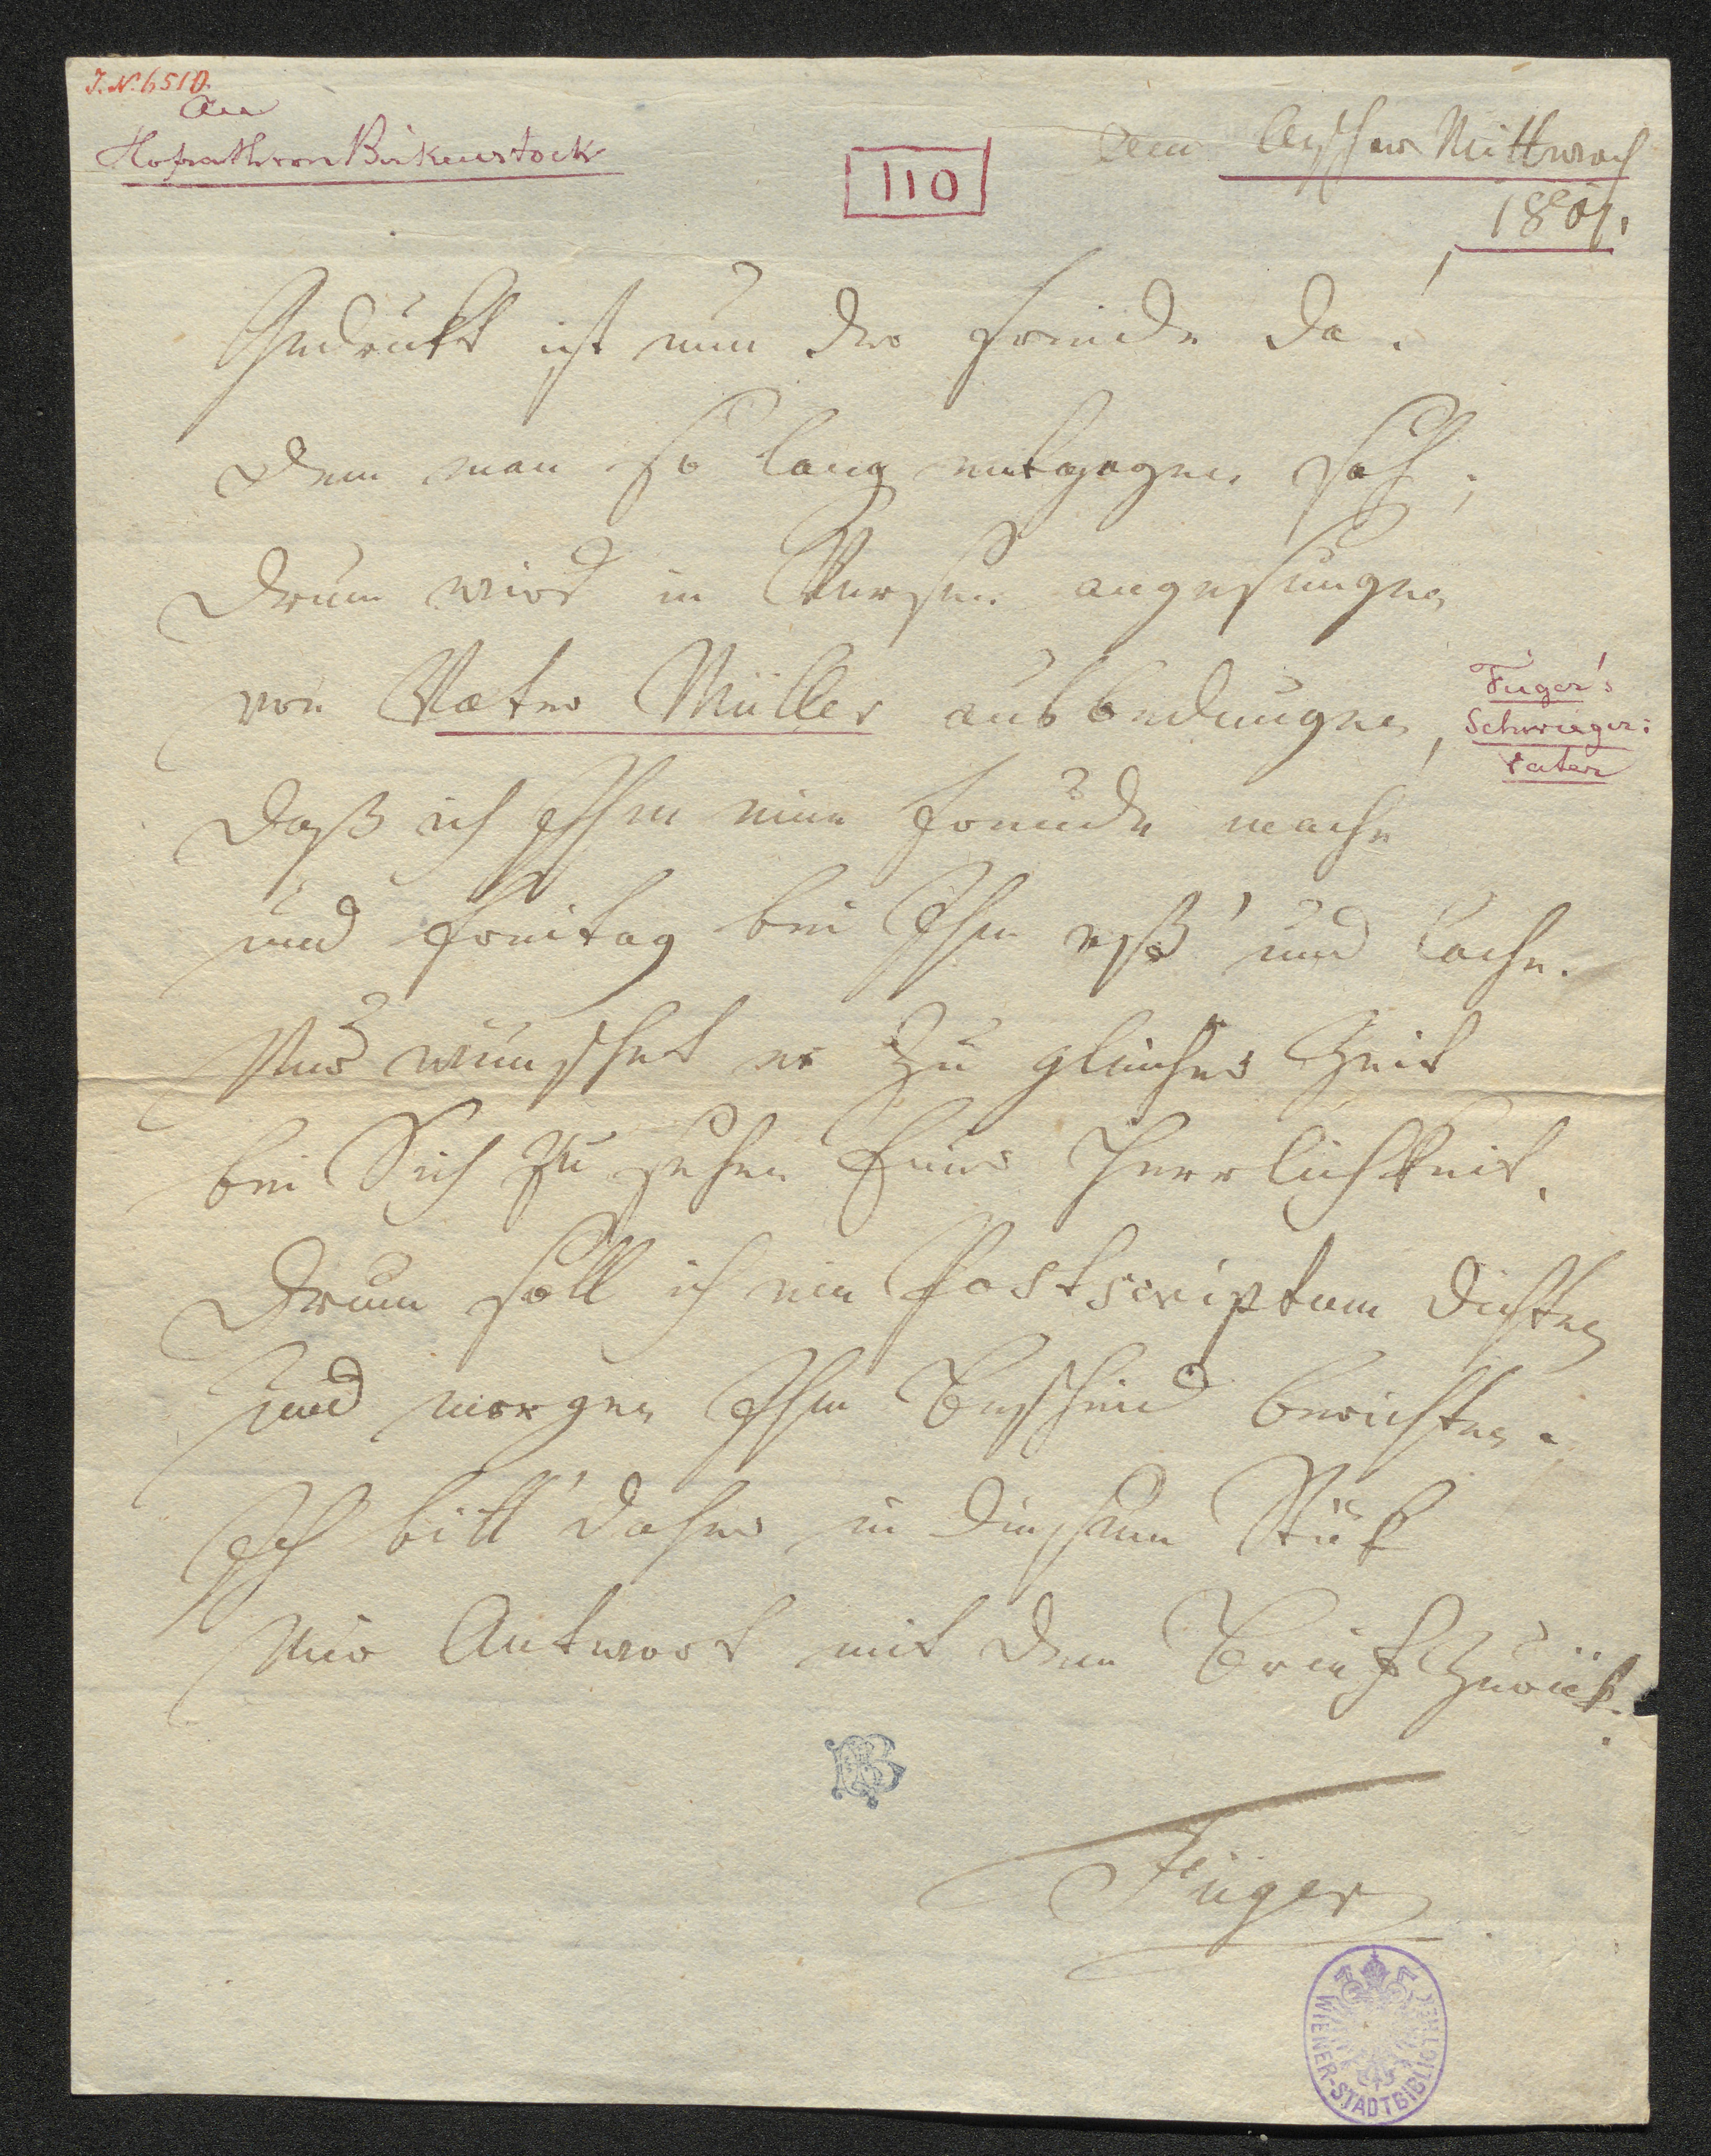 J. N. 6510.
An
Hofrath von Birkenstock
110
Am Ascher Mittwoch
1801.
Gedrukt ist nun der Freude da!
dem man so lang entgegen sah;
drum wird in Versen angesungen
von Vater Müller ausbedungen,
Füger's
Schwieger:
vater
daß ich Ihm eine Freude mache
und Freitag bei Ihm eß' und lache.
Nur wünschet er zu gleicher Zeit
bei Sich zu sehen Euer Herrlichkeit.
Drum soll ich ein Postscriptum dichten
und morgen Ihm Bescheid berichten.
Ich bitt' daher in diesem Stük
mir Antwort mit dem Brief zurük.
Füger
WIENER-STADTBIBLIOTHEK